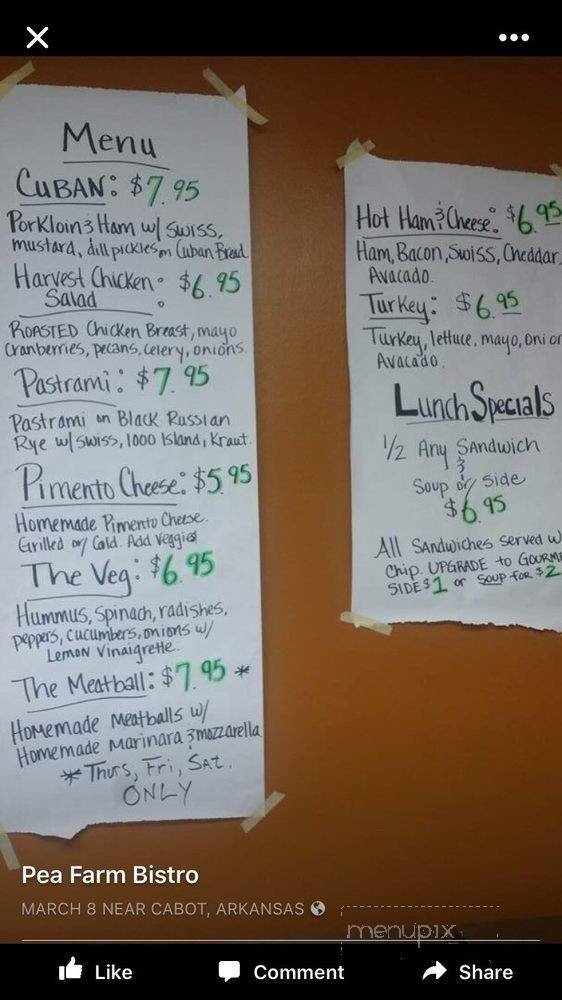 Menu
CUBAN: $7.95
Porkloin & Ham w/ Swiss,
mustard, dill pickles on Cuban Bread
Harvest Chicken
Salad : $6.95
ROASTED Chicken Breast, mayo
Cranberries, pecans, celery, onions.
Pastrami: $7.95
Pastrami on Black Russian
Rye w/ Swiss, 1000 Island, Kraut.
Pimento Cheese: $5.95
Homemade Pimento Cheese.
Grilled or Cold. Add Veggies!
The Veg: $6.95
Hummus, Spinach, radishes,
peppers, cucumbers, onions w/
Lemon Vinaigrette.
The Meatball: $7.95 *
Homemade Meatballs w/
Homemade Marinara & mozzarella
* Thurs, Fri, Sat.
ONLY
Hot Ham & Cheese: $6.95
Ham, Bacon, Swiss, Cheddar,
Avacado.
Turkey: $6.95
Turkey, lettuce, mayo, onion
Avacado.
Lunch Specials
1/2 Any Sandwich
&
Soup or Side
$6.95
All Sandwiches served w
Chip. UPGRADE to GOURME
SIDE $1 or Soup for $2
Pea Farm Bistro
MARCH 8 NEAR CABOT, ARKANSAS
menupix
Like Comment Share